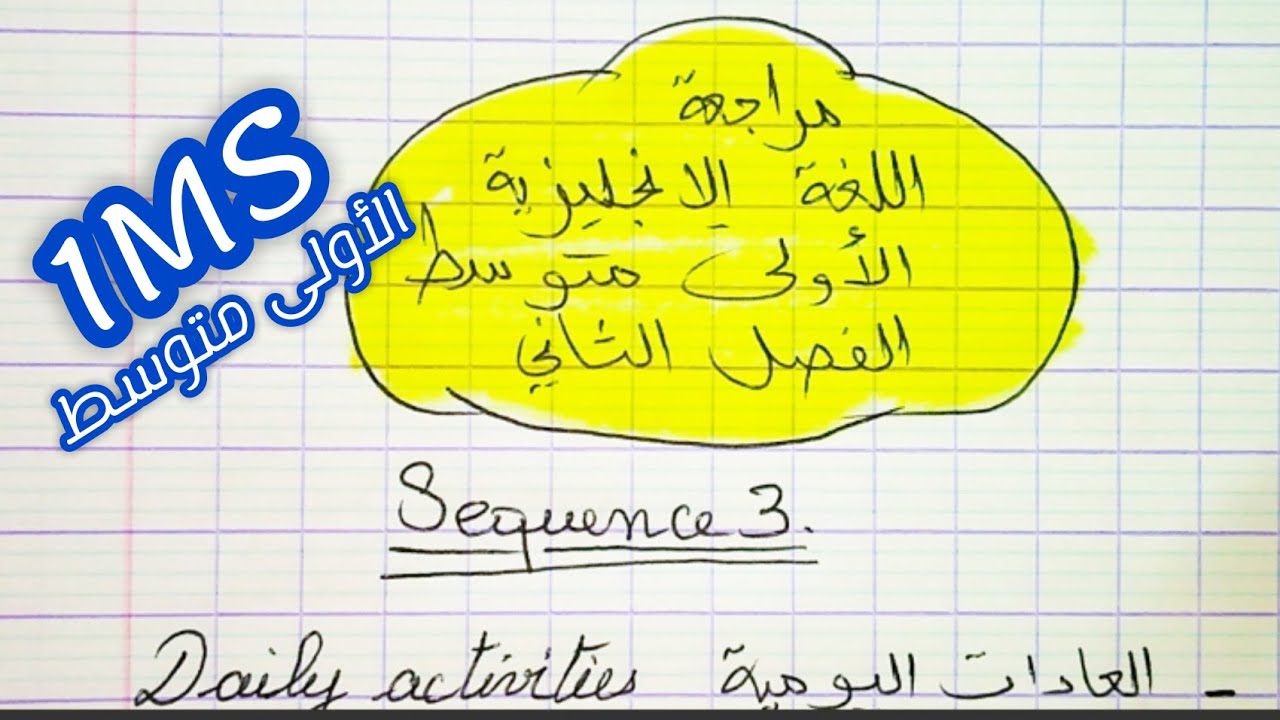 1MS
الأولى متوسط
مراجعة
اللغة الإنجليزية
الأولى متوسط
الفصل الثاني
Sequence 3.
Daily activities العادات اليومية -